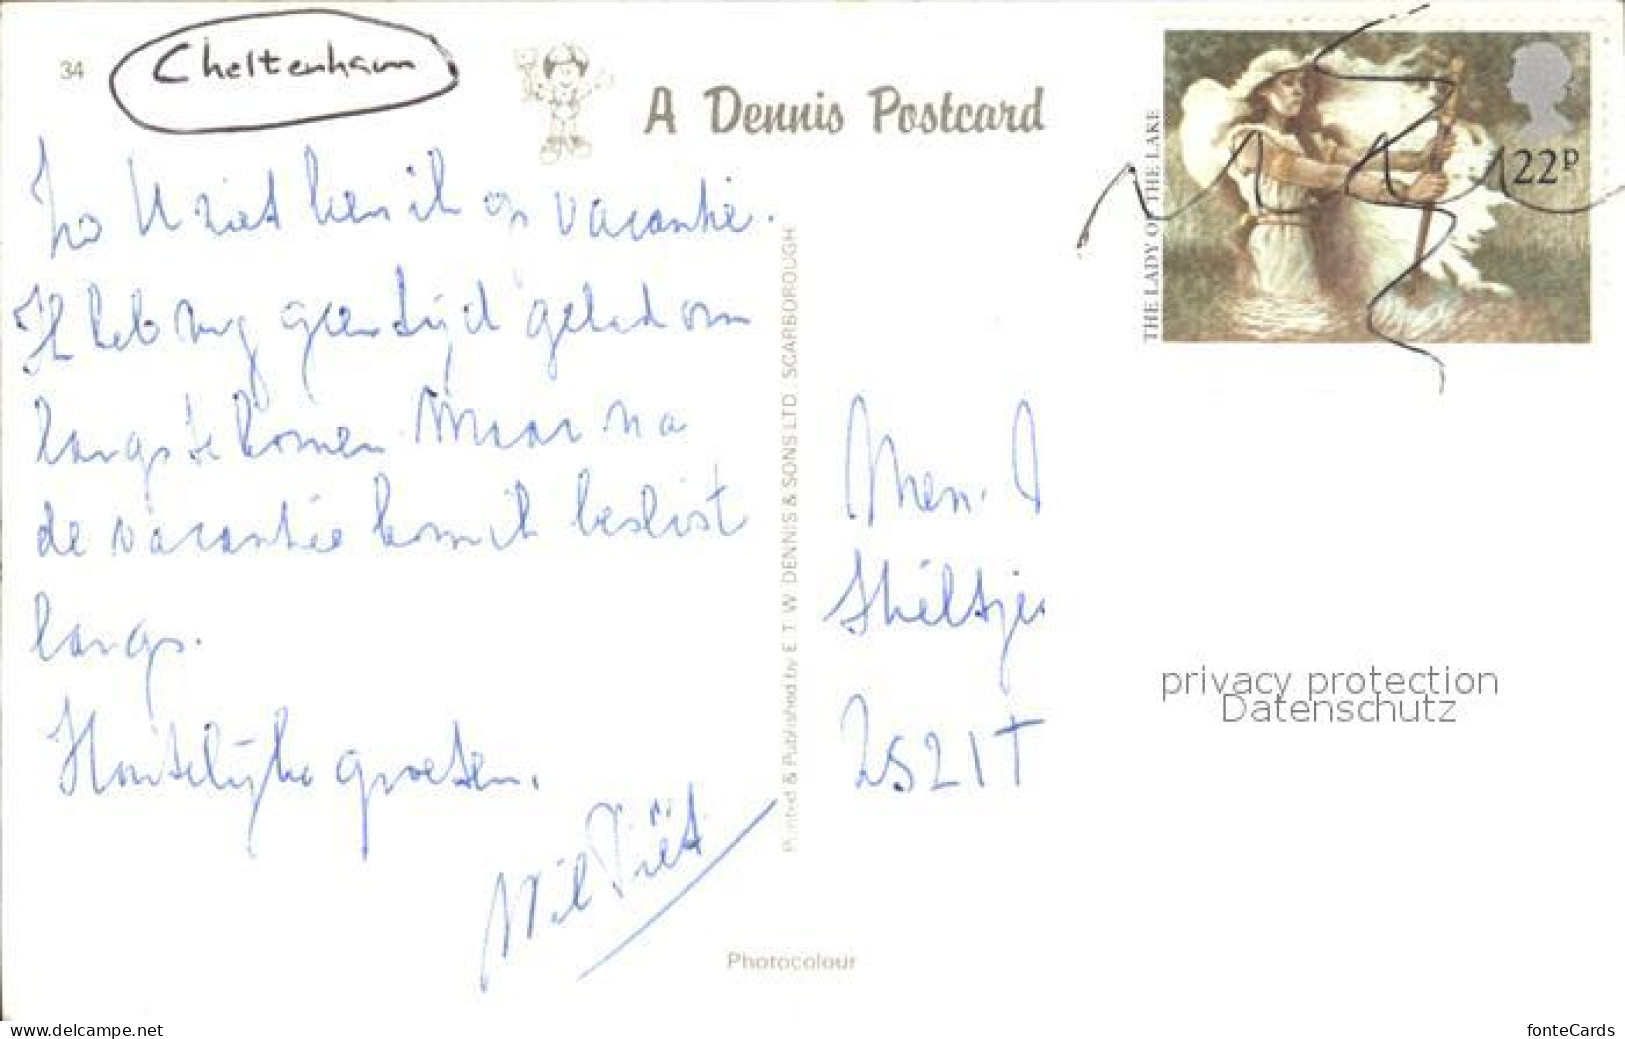 34
Cheltenham
A Dennis Postcard
THE LADY OF THE LAKE
22P
Zo U ziet ben ik op vacantie.
Ik heb nog geen tijd gehad om
langs te komen. Maar na
de vacantie kom ik beslist
langs.
Hartelijke groeten.
Wil Piët
Printed & Published by E. T. W. DENNIS & SONS LTD., SCARBOROUGH
Men.
2521T
privacy protection
Datenschutz
Photocolour
www.delcampe.net
fonteCards